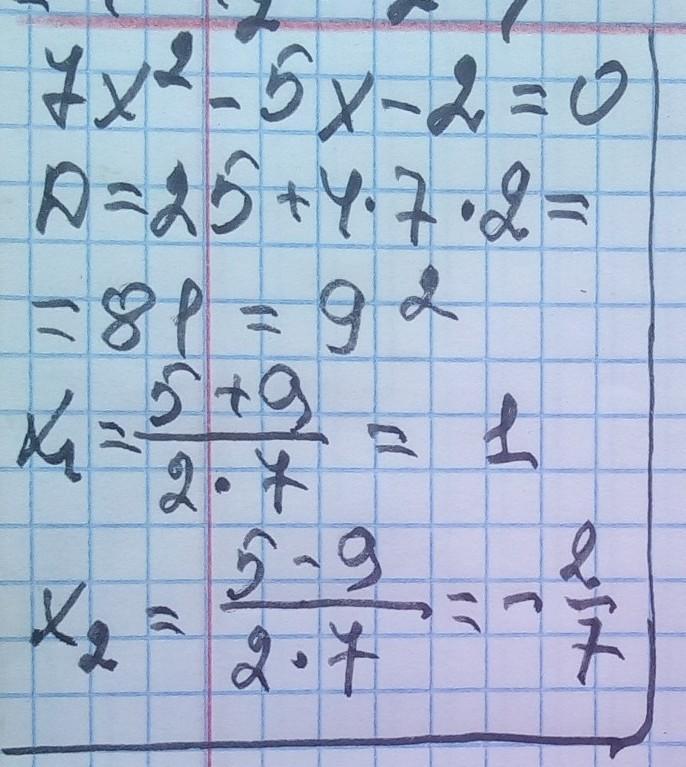 7x² - 5x - 2 = 0
D = 25 + 4 · 7 · 2 =
= 81 = 9²
x₁ = (5 + 9)/(2 · 7) = 1
x₂ = (5 - 9)/(2 · 7) = - 2/7